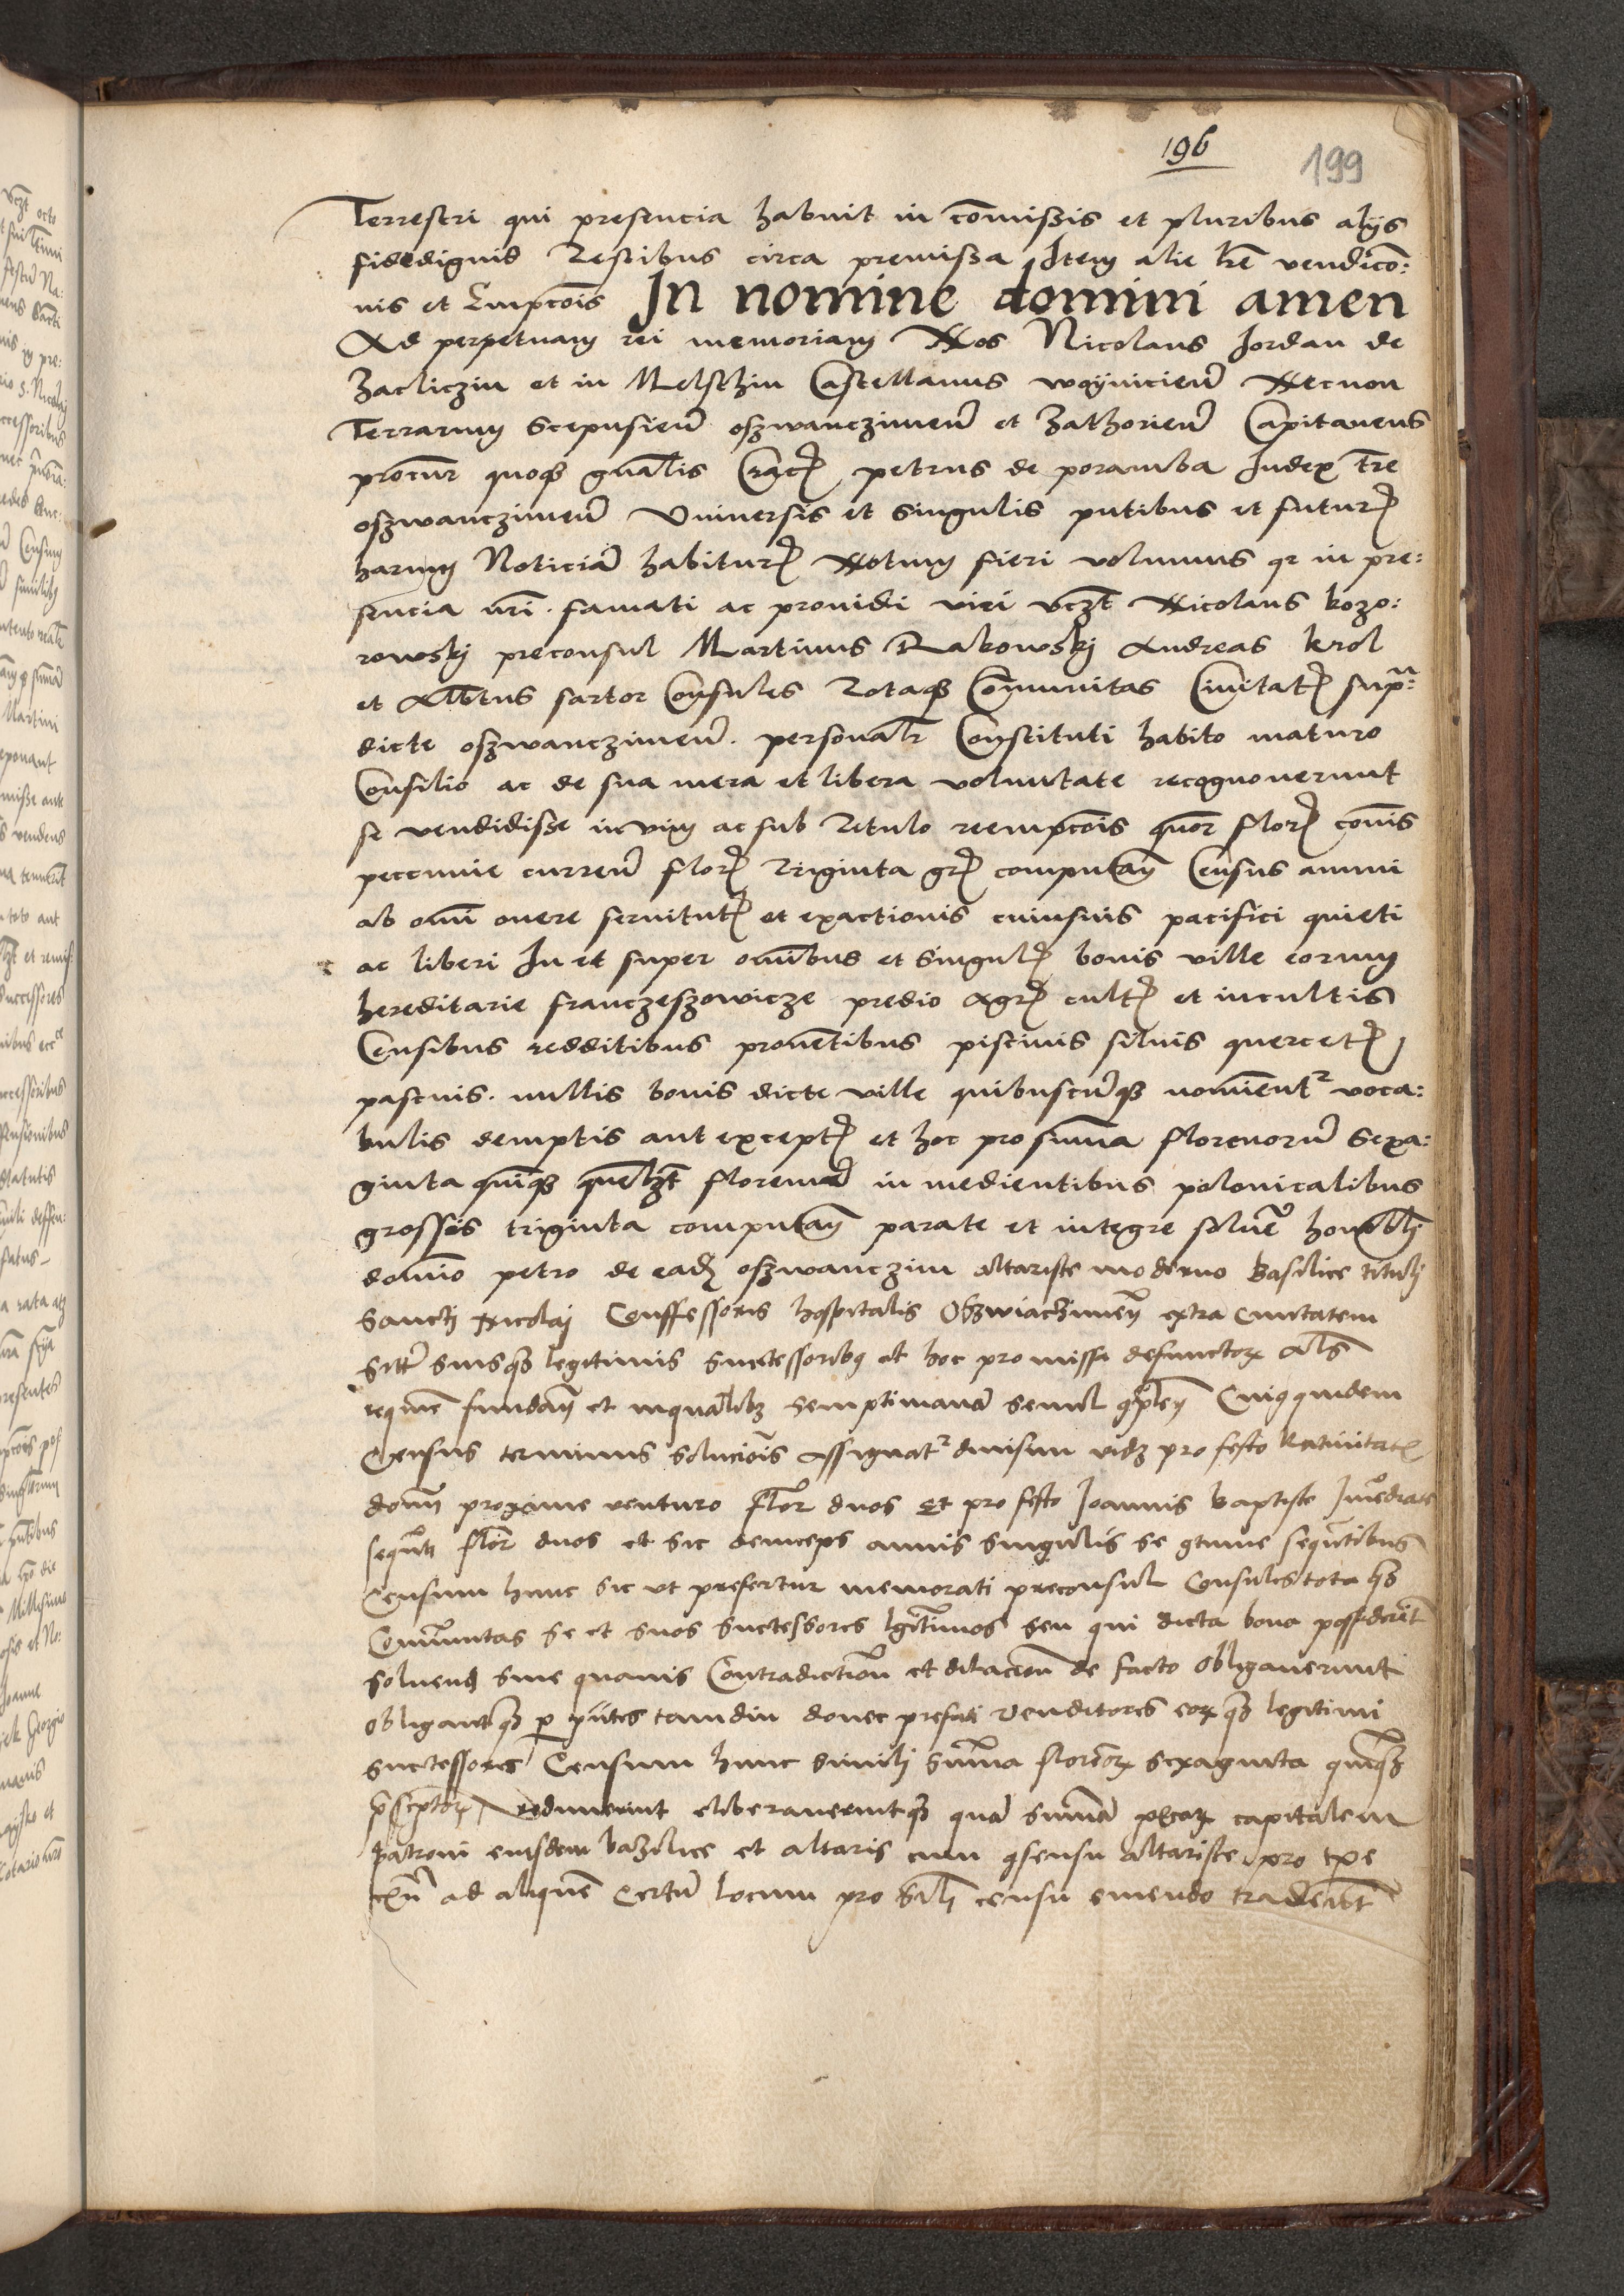 196
199
Terrestri qui presencia habuit in com̄issis et pluribus alijs
fidedignis Testibus circa premissa Item alie lr̄e vendicō:
nis et Empcōis In nomine domini amen
Ad perpetuam rei memoriam Nos Nicolaus Jordan de
Zacliczin et in Melschin Castellanus woyniciēn Necnon
Terrarum Scepusiēn oszwanczimēn et Zathoriēn Capitaneus
procūr quoqꝫ gn̄alis Cracꝭ petrus de poramba Judex Tr̄e
oszwanczimēn Vniuersis et singulis pn̄tibus et futurꝭ
harum Noticiā habiturꝭ Notum fieri volumus qꝛ in pre:
sencia nr̄i. famati ac prouidi viri vczt̄ Nicolaus kozo:
rowskj preconsul Martinus Rakowskj Andreas krol
et Alb̄tus sartor Consules Totaqꝫ Com̄unitas Ciuitatꝭ sup̄ra:
dicte oszwanczimēn. personalr̄ Constituti habito maturo
Consilio ac de sua mera et libera voluntate recognouerunt
se vendidisse in vim ac sub Titulo reempcōis quor̄ florꝭ com̄is
peccunie currēn florꝭ Triginta grꝭ computan̄ Census annui
ab om̄i onere seruitutꝭ et exactionis cuiusuis pacifici quieti
ac liberi In et super om̄ibus et singulꝭ bonis ville eorum
hereditarie franczeszowicze predio Agrꝭ cultꝭ et incultis
Censibus redditibus prouētibus piscinis siluis quercetꝭ
pascuis. nullis bonis dicte ville quibuscūqꝫ nominēntr voca:
bulis demptis aut exceptꝭ et hoc pro sum̄a florenorū sexa:
ginta quīqꝫ quēlꝫt florenū in medientibus polonicalibus
grossis triginta computan̄ parate et integre solut̄ honorabl̄j
domīo petro de eadꝫ oszwanczim altariste moderno Basilice titulj
Sanctj Nicolaj Conffessoris hospitalis Osszwiaczimen̄ extra Ciuitatem
Sitt̄ suisqꝫ legitimis successoribꝫ et hoc pro missa defunctorꝝ Al̄s
requiē fundan̄ et in qualibꝫ Semptimana semel complen̄ Cuiꝰquidem
Census terminus soluciōis Assignatr diuisim vidꝫ pro festo Natiuitatꝭ
domn̄j proxime venturo flor̄ duos et pro festo Joannis baptiste Jm̄ediate
sequn̄ti flor̄ duos et sic deinceps annis singulis se 9tinue sequētibus
Censum hunc sic vt prefertur memorati preconsul Consules tota qꝫ
Com̄unitas se et suos successores lgitimos seu qui dicta bona possiderit̄
soluend̄ sine quauis Contradictiōn et dilaciōn de facto obligauerunt
obligantqꝫ ꝑ pn̄tes tamdiu donec prefati venditores eorꝝqꝫ legitimi
successores Censum hunc similj sum̄a florenorꝝ sexaginta quīqꝫ
p̄scptorꝝ redimerint eliberauerintqꝫ quā sum̄ā pēcōrꝝ capitalem
patroni eiusdem bazilice et altaris cum 9sensu altariste pro tp̄e
ex̄n ad aliquē certū locum pro sil̄j censu emendo traderīt